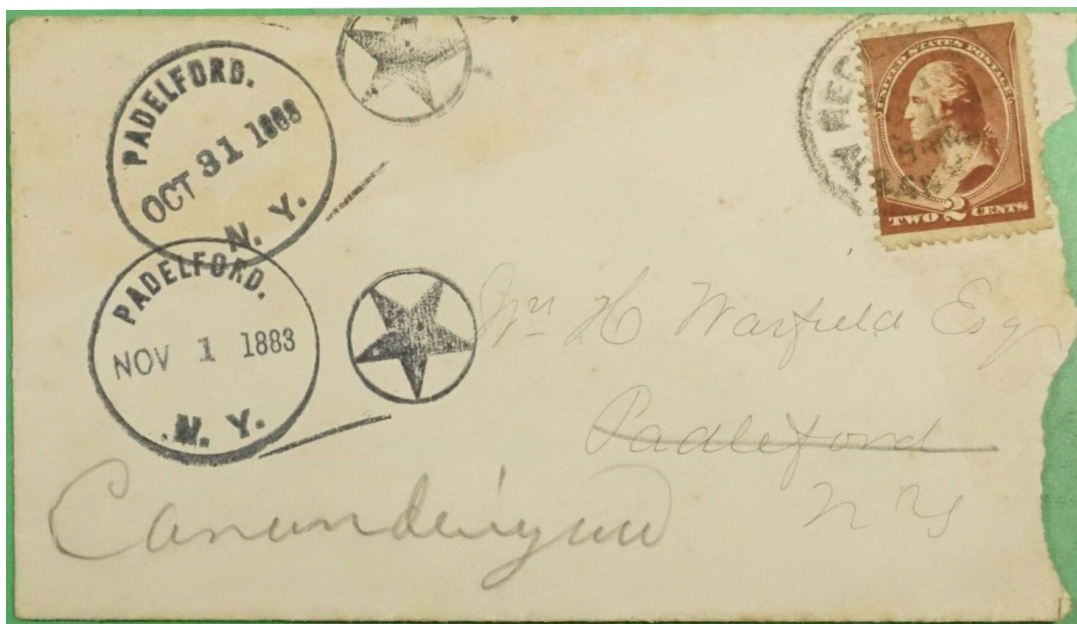 PADELFORD.
OCT 31 1883
N. Y.
PADELFORD.
NOV 1 1883
N. Y.
UNITED STATES POSTAGE
TWO 2 CENTS
Wm H Warfield Esq
Padleford
N Y
Canandaigua